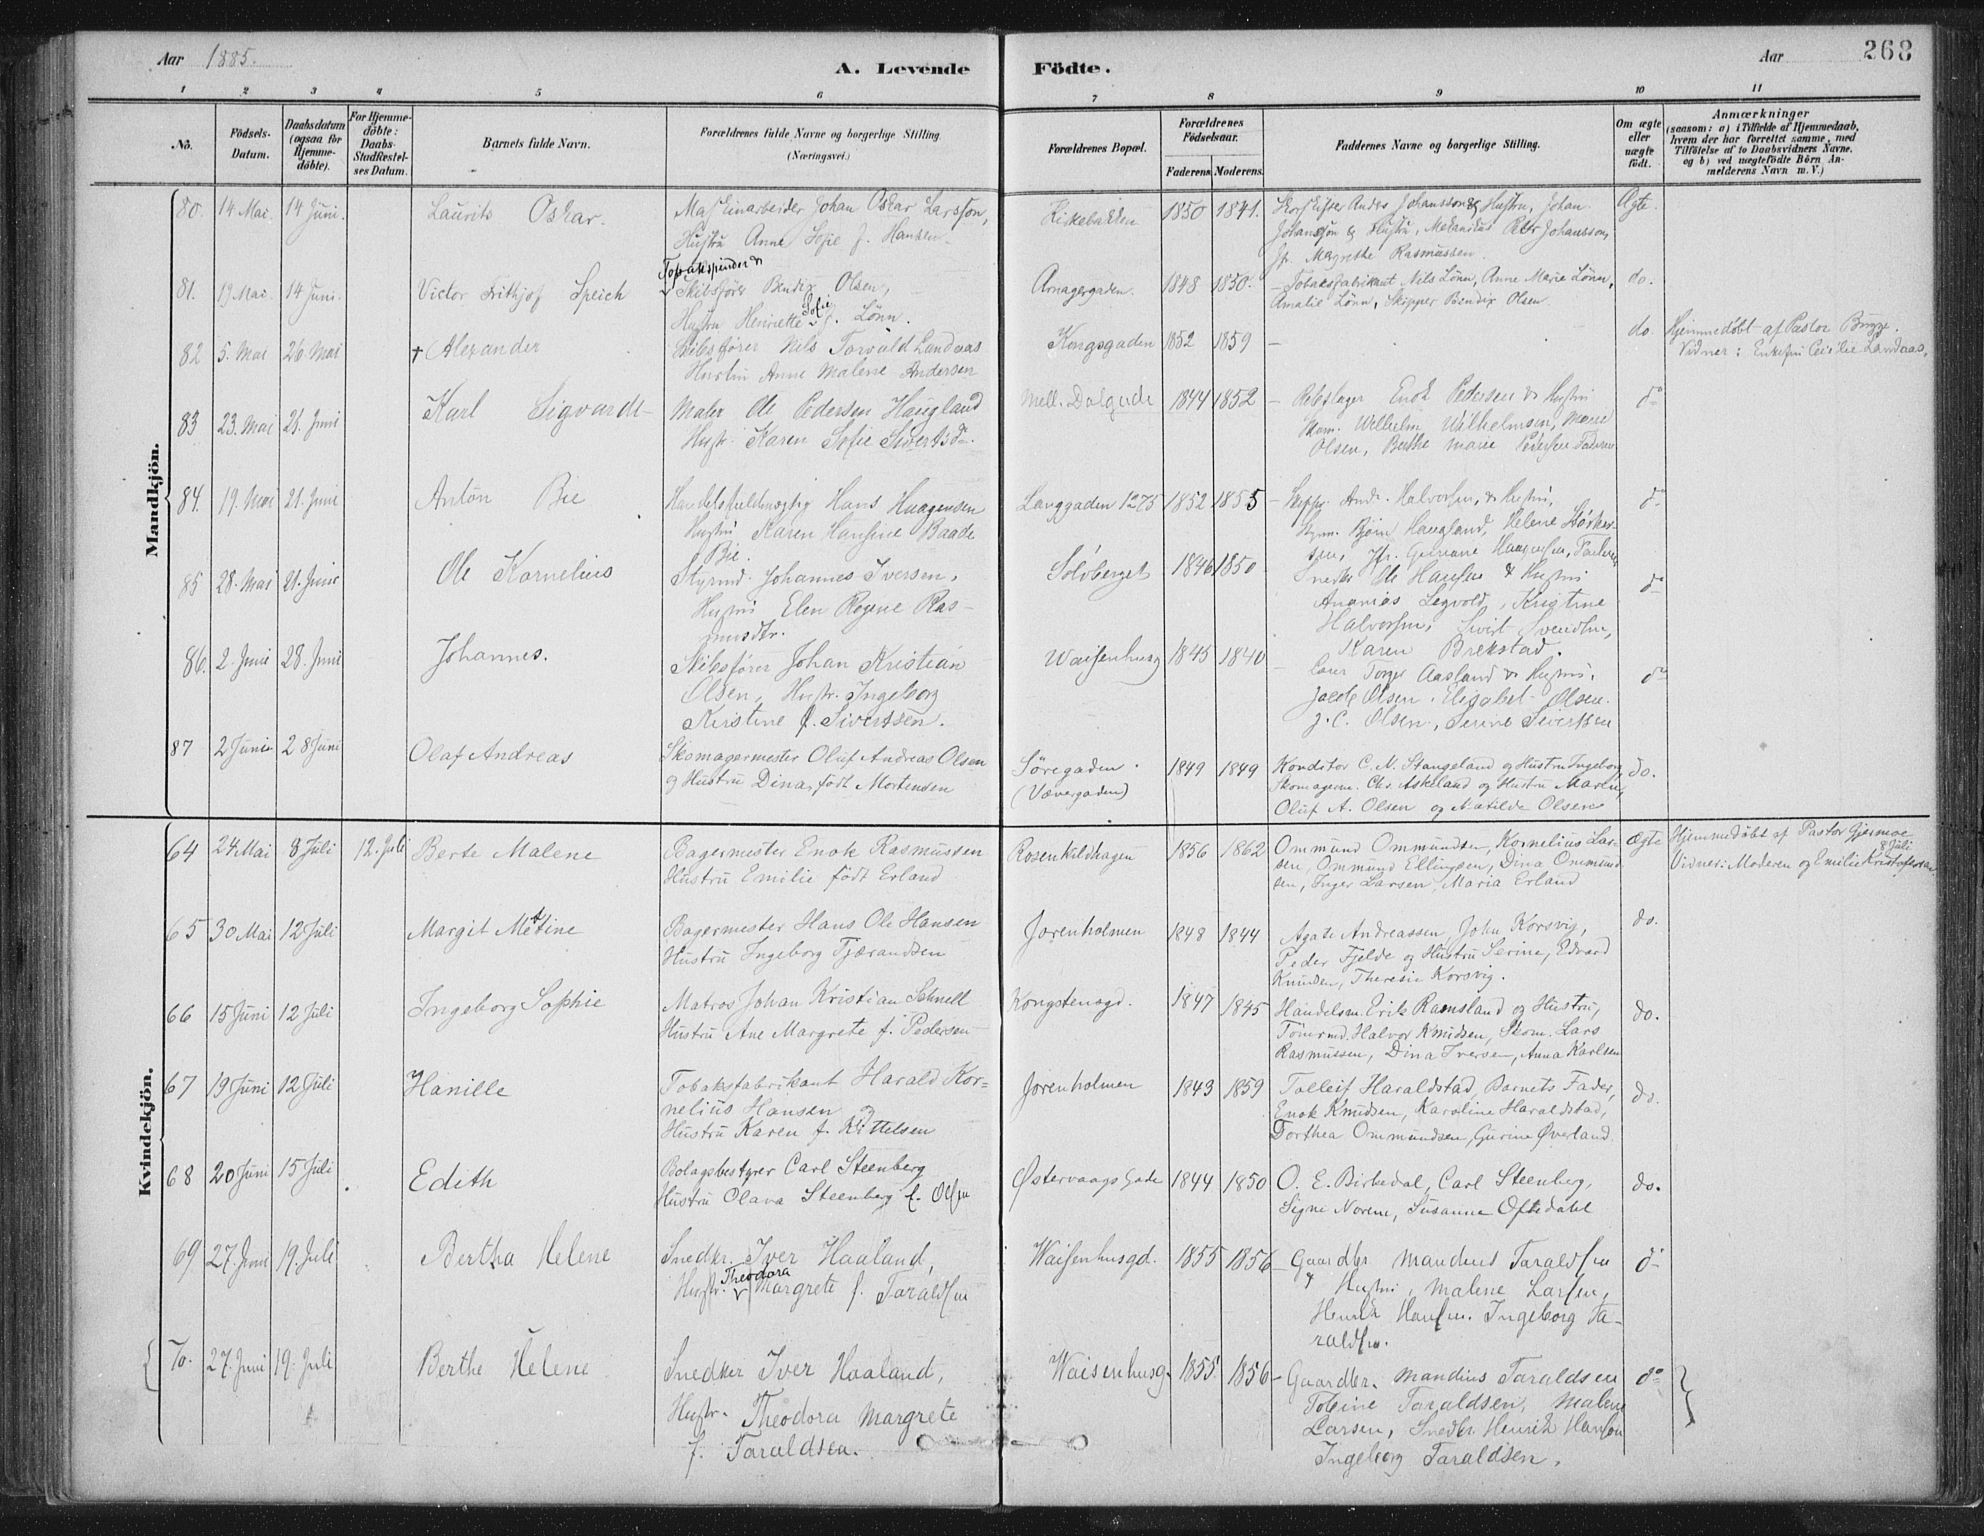 Aar 1885.
A. Levende
Födte.
Aar
268
1 2 3 4 5 6 7 8 9 10 11
No.
Födsels-Datum.
Daabsdatum (ogsaa for Hjemmedöbte).
For Hjemmedöbte: Daabs-Stadfæstelses Datum.
Barnets fulde Navn.
Forældrenes fulde Navne og borgerlige Stilling (Næringsvei.)
Forældrenes Bopæl.
Forældrenes Födselsaar.
Faderens Moderens.
Faddernes Navne og borgerlige Stilling.
Om ægte eller uægte födt.
Anmærkninger
(saasom: a) i Tilfælde af Hjemmedaab, hvem der har forrettet samme, med Tilföielse af to Daabsvidners Navne, og b) ved uægtefödte Börn Anmelderens Navn m. V.)
Mandkjön.
80. 14 Mai. 14 Juni. Laurits Oskar. Maskinarbeider Johan Oskar Larsson, Kirkebakken 1850 1841. Anders Johansson & Hustru, Johan Ægte.
Hustru Anne Sofie f. Hansen. Johansson & Hustru, Melanius Peter Johansson,
Jfr. Magrethe Rasmussen.
Tobakspinder &
81. 19 Mai. 14 Juni. Victor Frithjof Speich Skibsfører Bendix Olsen, Arnagergaden. 1848 1850. – Tobaksfabrikant Nils Lönn, Anne Marie Lönn, do.
Hustru Henriette Sofie f. Lönn. Amalie Lönn, Skipper Bendix Olsen.
82 5. Mai 26 Mai + Alexander Skibsfører Nils Torvald Landaas Kongsgaden 1852 1859 – do. Hjemmedöbt af Pastor Brygge.
Hustru Anne Malene Andersen Vidner: Enkefru Cecilie Landaas.
83 23. Mai 21. Juni Karl Sigvardt Maler Ole Pedersen Haugland Mell. Dalgade 1844 1852 – Rebslager Enok Pedersen & Hustru do
Hustr. Karen Sofie Sivertsdr. Skom. Wilhelm Wilhelmsen, Marie
Olsen, Berthe Marie Pedersen Faderen
84. 19. Mai 21. Juni Anton Bie Handelsfuldmægtig Hans Haagensen Langgaden 1275 1852 1855 – Skippr. Andr. Halvorsen & Hustru, do
Hustru Karen Hansine Baade Styrm. Björn Haugland, Helene
Bie. Jfr. Haagensen, Faderen
85 28. Mai 21. Juni Ole Kornelius Styrmd. Johannes Iversen, Sölvberget 1846 1850 Snedkr Ole Hansen & Hustru do
Hustru Elen Regine Rasmusdtr. Ananias Segvold, Kristine
Halvorsen, Sivert Svendsen,
Karen Brekstad.
86. 2. Juni 28. Juni Johannes. Skibsfører Johan Kristian Waisenhusg 1845 1840 – Torger Aasland & Hustru, do
Olsen, Hustr. Ingeborg Jakob Olsen, Elisabet Olsen
Kirstine f. Sivertsen. J. C. Olsen, Serine Sivertsen
87 2 Juni 28 Juni Olaf Andreas Skomagermester Oluf Andreas Olsen Söregaden. 1849 1849 Konditor C. N. Stangeland og Hustru Ingeborg do.
og Hustru Dina, født Mortensen (Vævergaden) Skomagerm. Chr. Askeland og Hustru Maren,
Oluf A. Olsen og Matilde Olsen
Kvindekjön.
64 24 Mai 8 Juli 12. Juli Berte Malene Bagermester Enok Rasmussen Rosenkildhagen 1856 1862 Ommund Ommundsen, Kornelius Larsen, Ægte Hjemmedöbt af Pastor Gjermoe 8 Juli
Hustru Emilie født Erland Ommund Ellingsen, Dina Ommundsen, Inger Larsen, Maria Erland Vidner: Moderen og Emilie Kristofersen
65 30 Mai 12 Juli Margit Mettine Bagermester Hans Ole Hansen Jorenholmen 1848 1844 Agate Andreassen, John Korsvig, do.
Hustru Ingeborg Tjærandsen Peder Fjelde og Hustru Serine, Edvard
Knudsen, Theresie Korsvig.
66 15 Juni 12 Juli Ingeborg Sophie Matros Johan Kristian Schnell Kongstensgd. 1847 1845 Handelsm. Erik Ramsland og Hustru, do.
Hustru Ane Margrete f. Pedersen Tömrmd. Halvor Knudsen, Skom. Lars
Rasmussen, Dina Iversen, Anna Karlsen
67 19 Juni 12 Juli Hanille Tobaksfabrikant Harald Kornelius Hansen Jorenholmen 1843 1859 Tolleif Haraldstad, Barnets Fader, do.
Hustru Karen f. Kittelsen Enok Knudsen, Karoline Haraldstad,
Dorthea Ommundsen, Gurine Øverland
68 20 Juni 15 Juli Edith Bolagsbestyrer Carl Steenberg Østervaags Gade 1844 1850 O. E. Birkedal, Carl Steenberg, do.
Hustru Olava Steenberg f. Olsen Signe Norene, Susanne Oftedahl
69 27. Juni 19. Juli Bertha Helene Snedkr. Iver Haaland, Waisenhusgd. 1855 1856 – Gaardbr. Mandius Taraldsen do
Hustr. Theodora Margrete f. Taraldsen & Hustru, Malene Larsen,
Henrik Hansen. Ingeborg Taraldsen.
70. 27. Juni 19. Juli Berthe Helene Snedker Iver Haaland, Waisenhusg. 1855 1856 – Gaardbr. Mandius Taraldsen do
Hustr. Theodora Margrete Tobine Taraldsen, Malene
f. Taraldsen. Larsen, Snedkr. Henrik Hansen
Ingeborg Taraldsen.